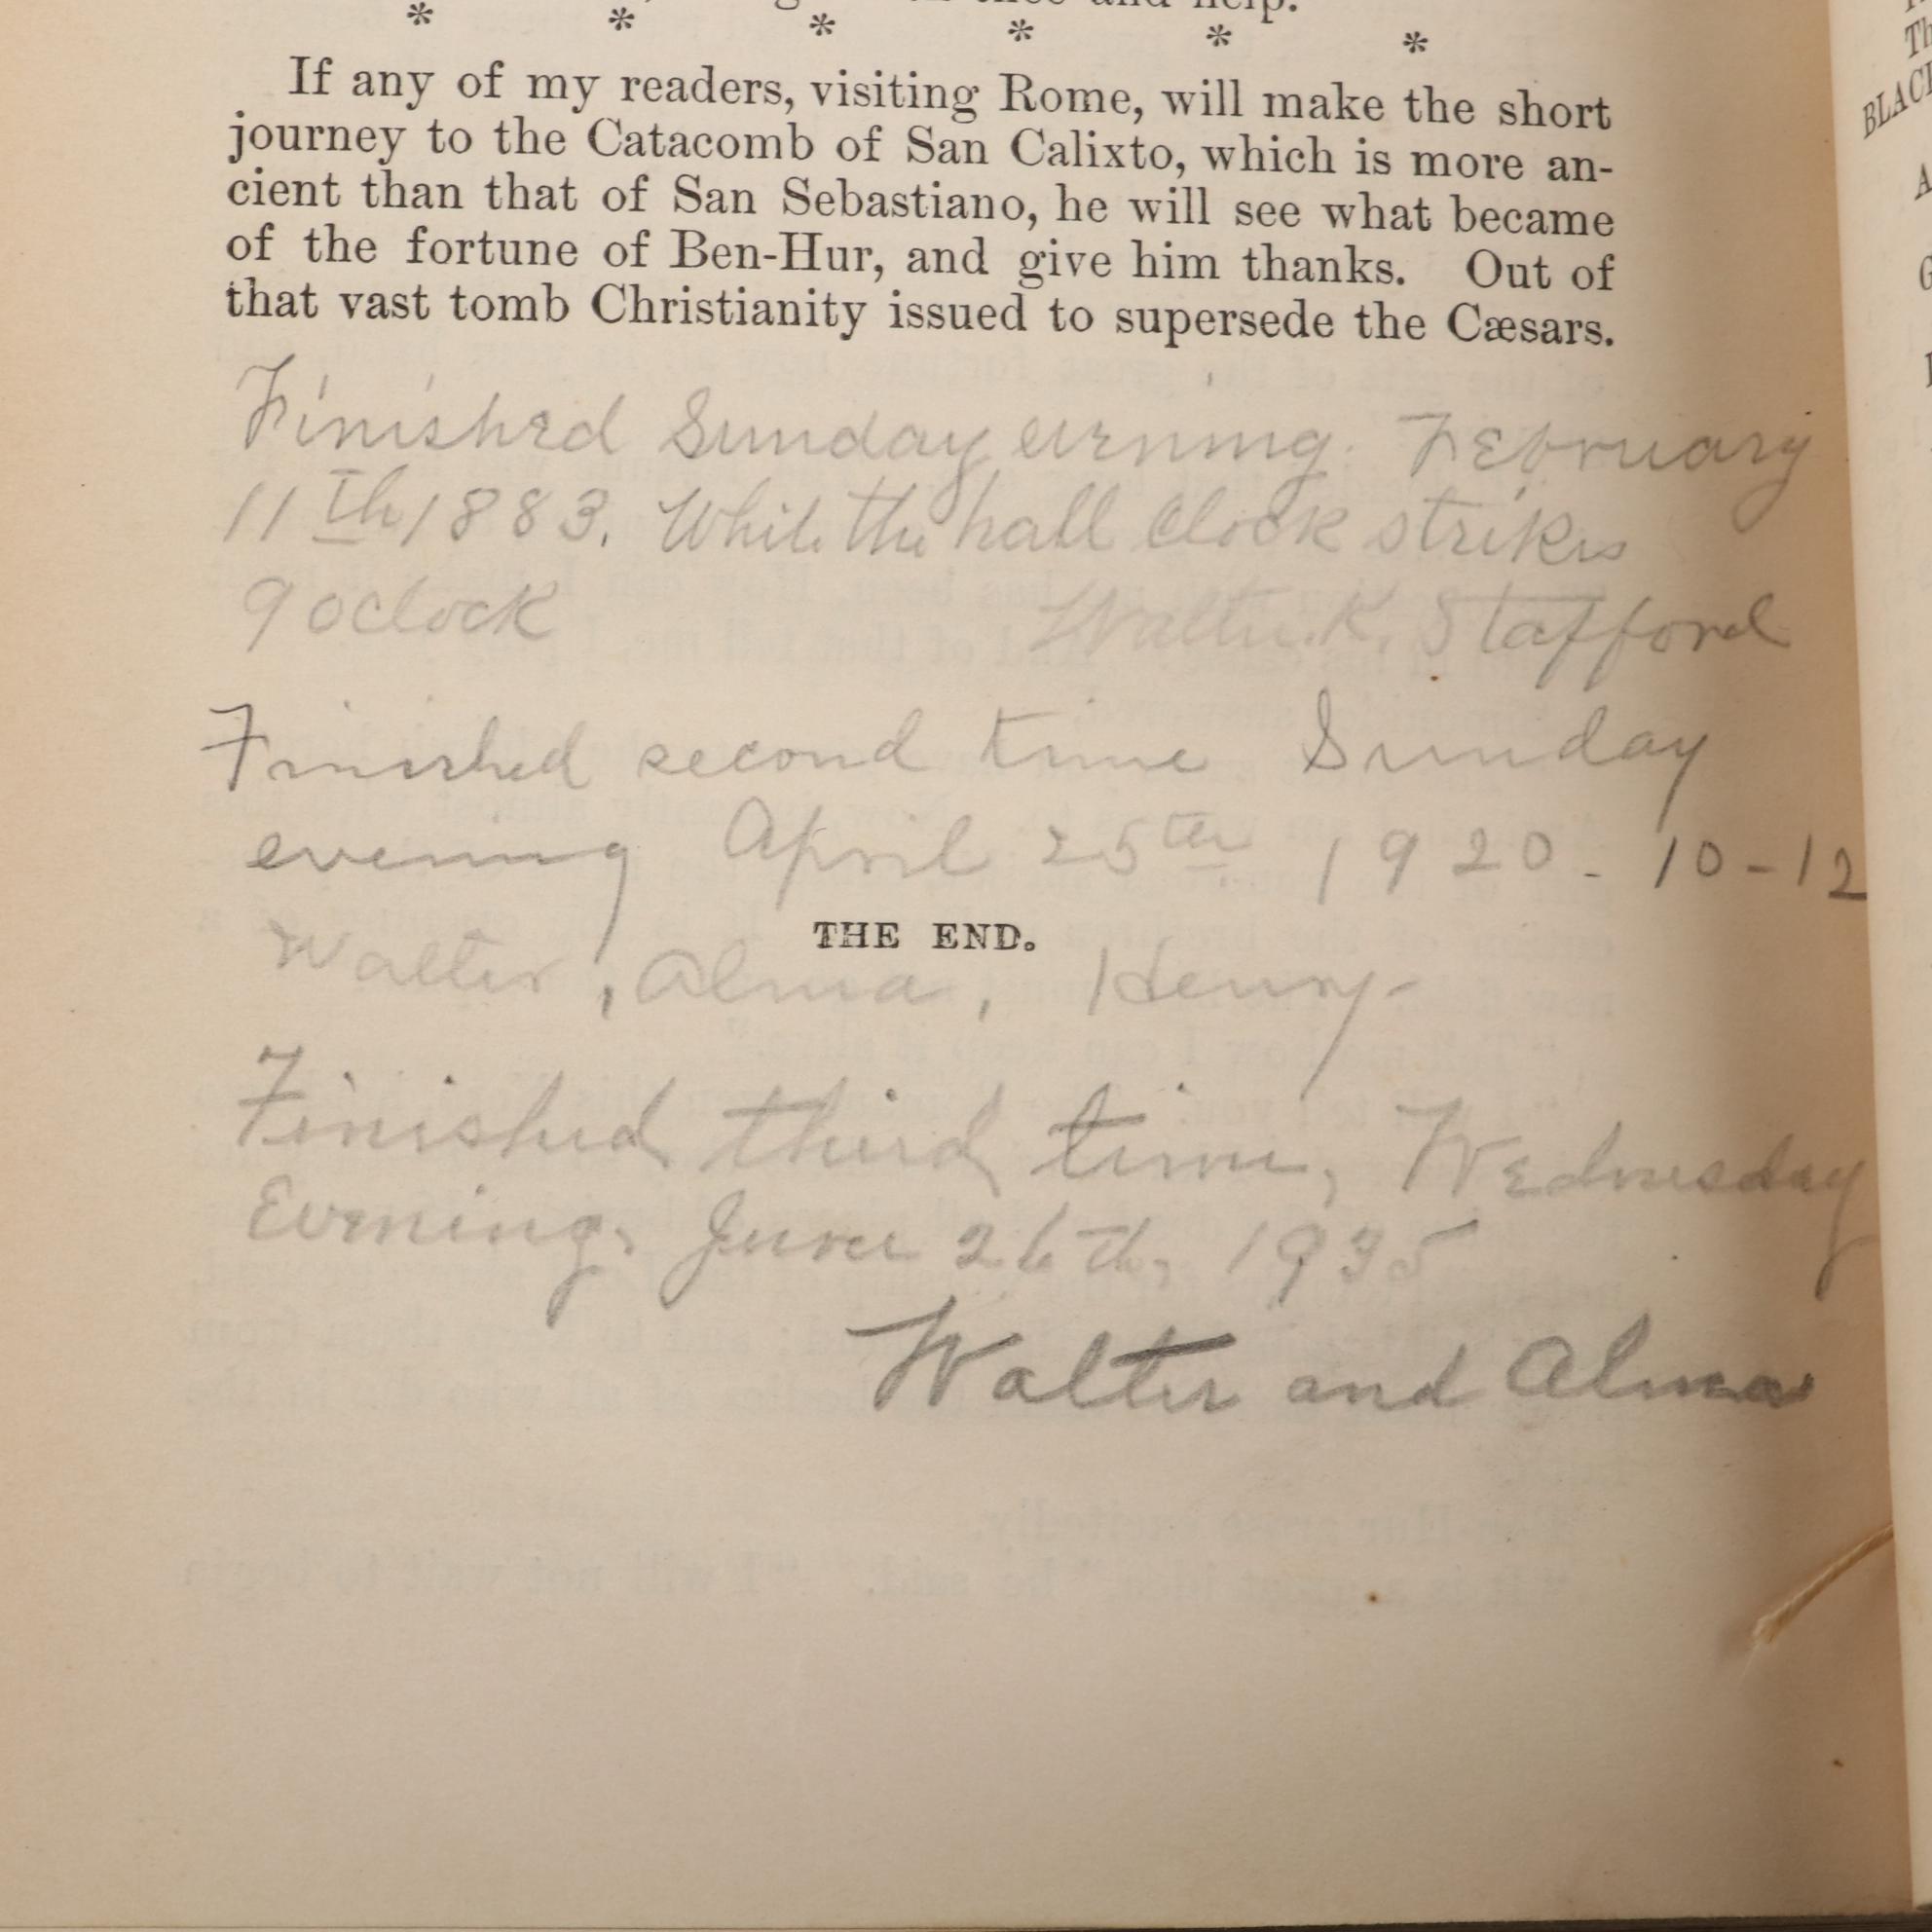 help.
* * * * * *
If any of my readers, visiting Rome, will make the short
journey to the Catacomb of San Calixto, which is more an-
cient than that of San Sebastiano, he will see what became
of the fortune of Ben-Hur, and give him thanks. Out of
that vast tomb Christianity issued to supersede the Cæsars.
Finished Sunday evening. February
11th 1883. While the hall clock strikes
9 oclock Walter K. Stafford
Finished second time Sunday
evening April 25th 1920 - 10-12
THE END.
Walter, Alma, Henry-
Finished third time, Wednesday
Evening, June 26th, 1935
Walter and Alma
BLACK